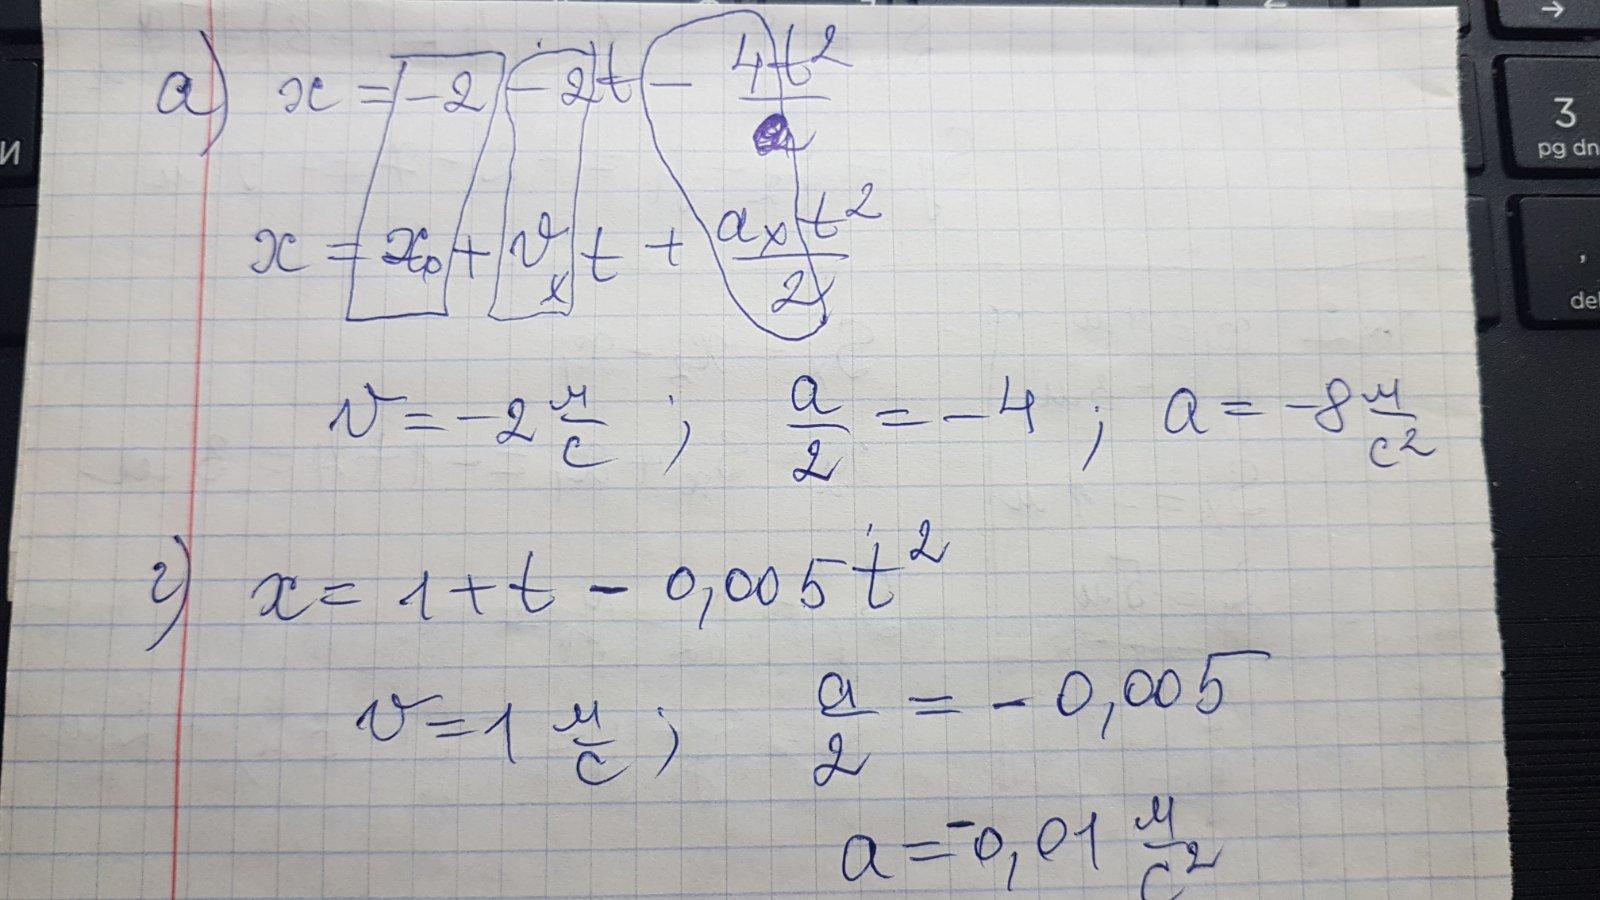 а) x = -2 -2t - 4t²
x = x₀ + vₓt + aₓt²/2
v = -2 м/с ; a/2 = -4 ; a = -8 м/с²
г) x = 1 + t - 0,005t²
v = 1 м/с ; a/2 = -0,005
a = -0,01 м/с²
И
3
pg dn
,
del
→